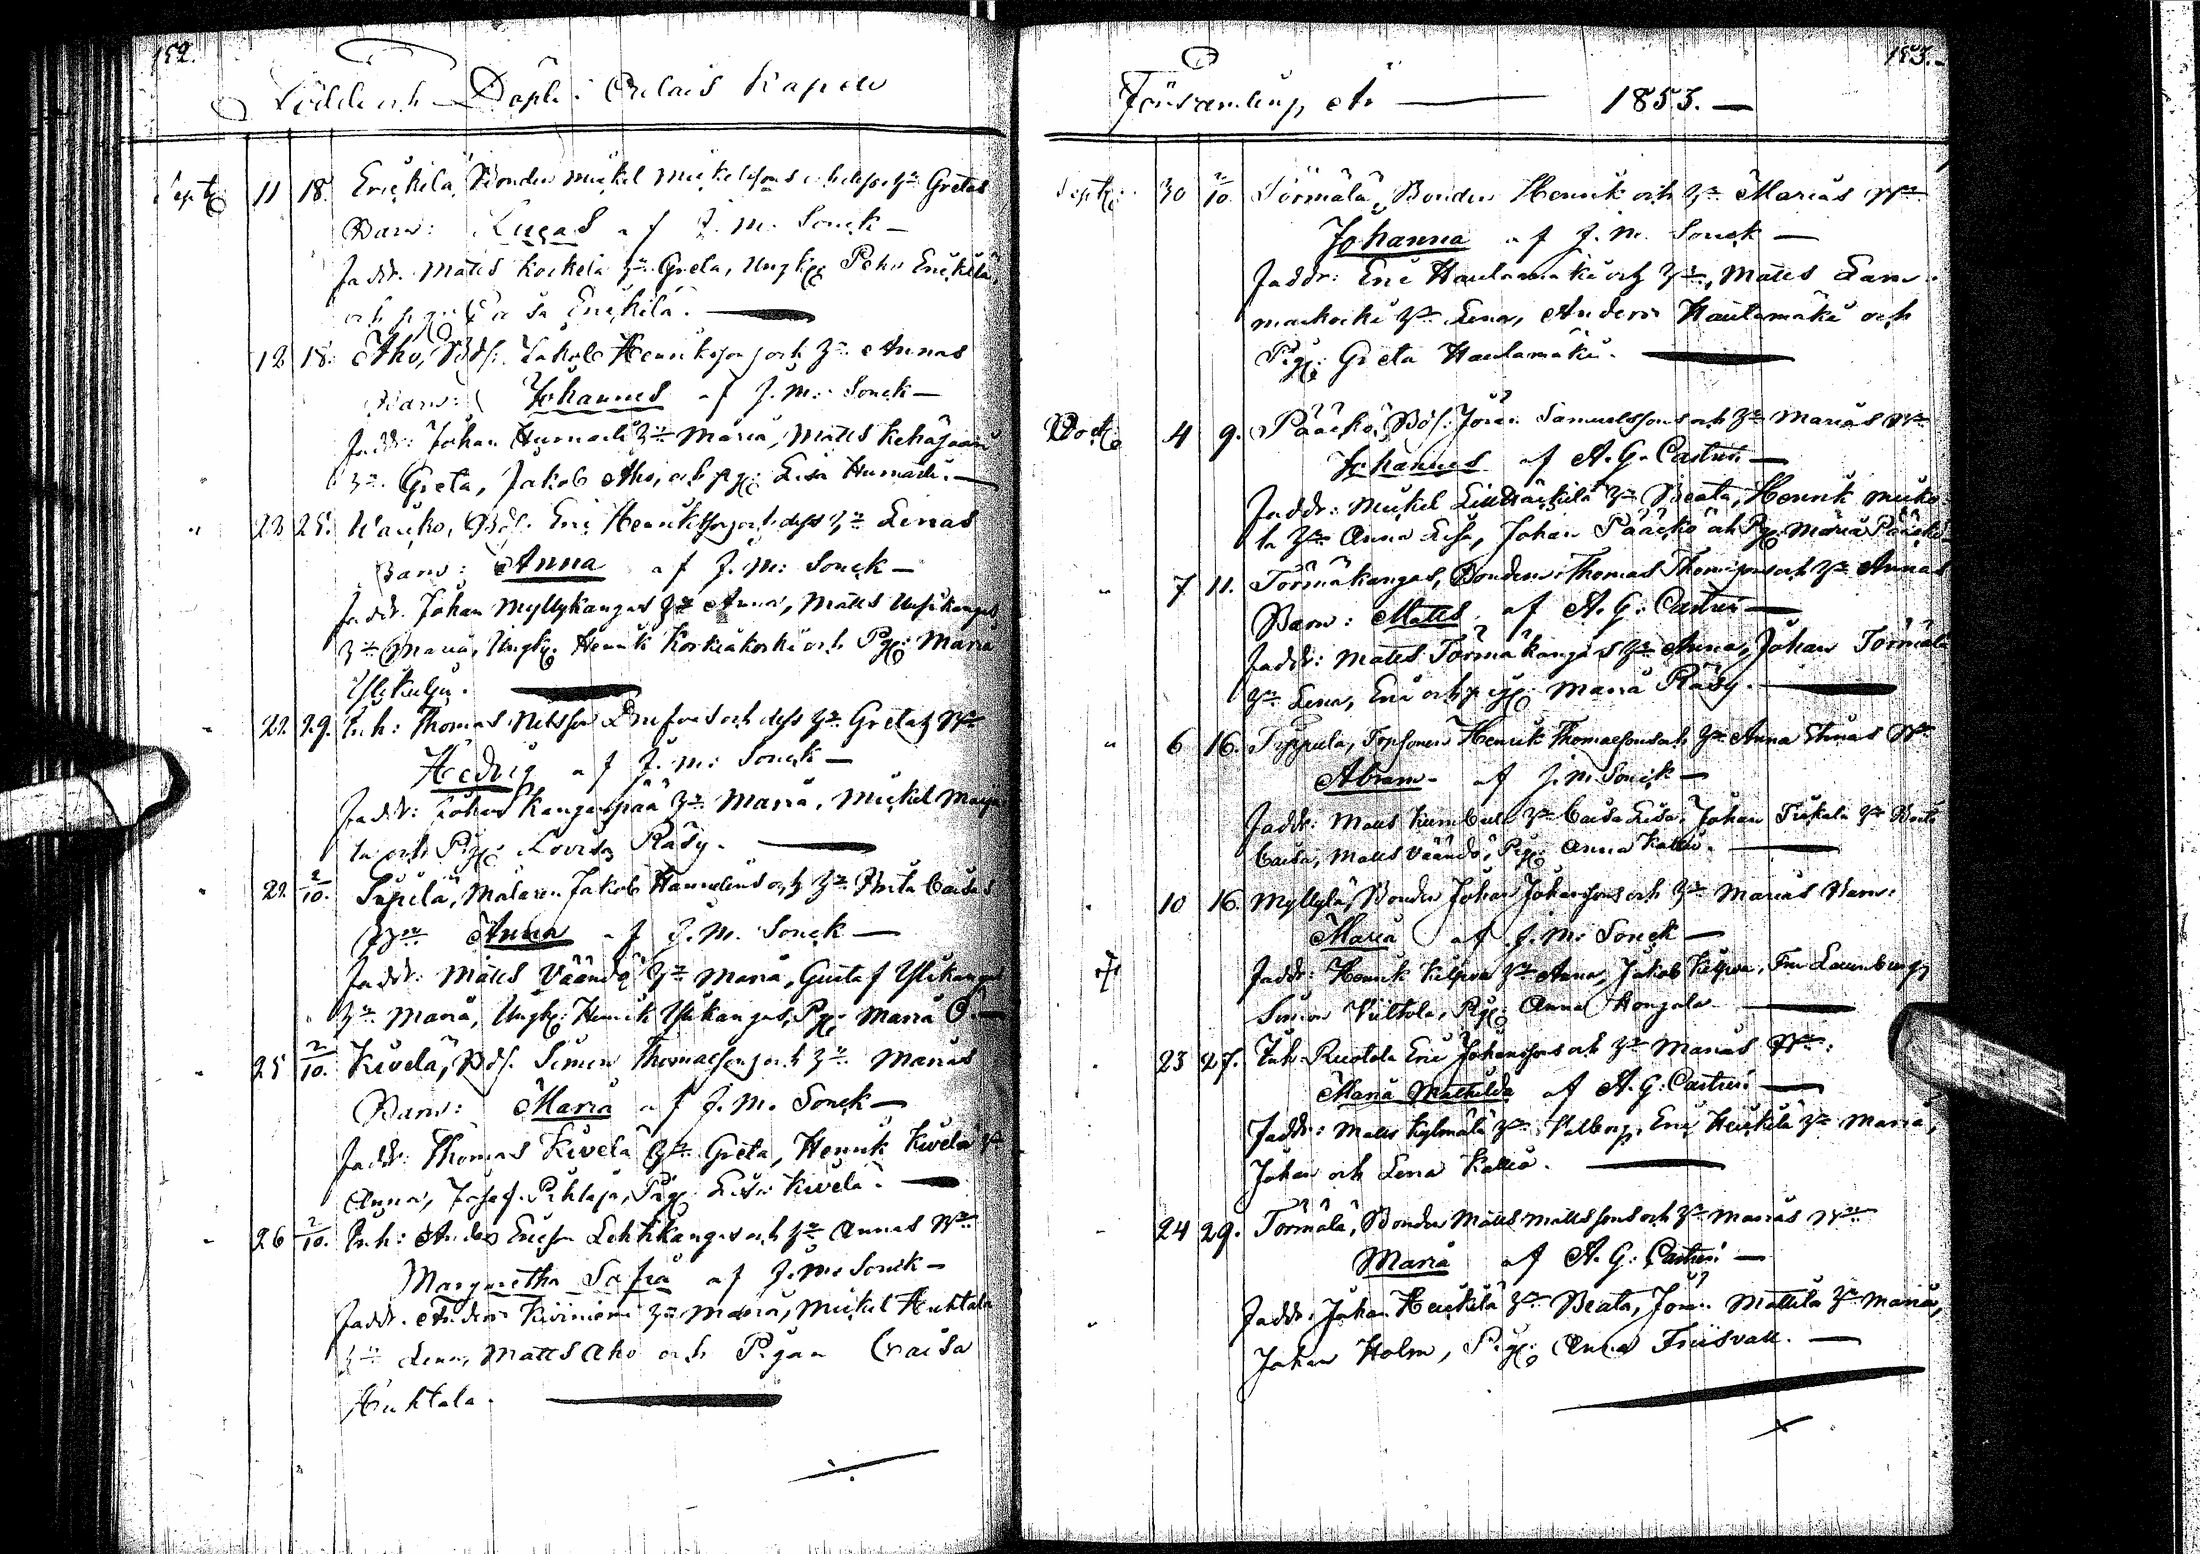 152.
Födde och Döpte i Orelais Kapell
Septr 11 18. Erickilä, Bonden Mickel Mickelssons och dess h:u Gretas
Barn: Lucas af J. M. Sonck —
Faddr. Matts Korkela h:u Greta, Ungk: Pehr Erickilä,
och pig: Caisa Erickilä. —
12 18. Aho, Bds: Jakob Henriksson och h:u Annas
Barn: Johannes af J. M. Sonck —
Faddr: Johan Hurnasti h:u Maria, Matts Kehäjaan
h:u Greta, Jakob Aho, och pig: Lisa
22 25. Bds: Eric Henriksson och dess h:u Lenas
Barn: Anna af J. M. Sonck —
Faddr. Johan Myllykangas h:u Anna, Matts
h:u Maria, Ungk: Henrik Korkiakoski och Pig: Maria
22. 29. Inh: Thomas Nilsson och dess h:u Gretas B:n
Hedvig af J. M. Sonck —
Faddr: Johan Kangaspää h:u Maria, Mickel Marja-
la och Pig: Lovisa Räsy. —
22. 2/10. Sipilä, Målaren Jakob Hannelius och h:u Brita Caisas
B:n Anna af J. M. Sonck —
Faddr: Matts Väändä h:u Maria, Gustaf Ylikangas
h:u Maria, Ungk: Henrik Ylikangas, Pig: Maria D:o —
25 2/10. Kivelä, Bds. Simon Thomasson och h:u Marias
Barn: Maria af J. M. Sonck —
Faddr: Thomas Kivelä h:u Greta, Henrik Kivelä h:u
Anna, Josef Pihlaja, Pig: Lisa Kivelä. —
26 2/10. Inh: Anders Ericsson Lehtikangas och h:u Annas B:n
Margaretha Sofia af J. M. Sonck —
Faddr. Anders Kiviniemi h:u Maria, Mickel Huhtala
h:u Lena, Matts Aho och Pigan Caisa
Huhtala. —
153.
Församling, År — 1853. —
Septr: 30 2/10. Törmälä, Bonden Henrik och h:u Marias B:n
Johanna af J. M. Sonck —
Faddr: Eric Hautamäki och h:u, Matts Lam-
minkoski h:u Lena, Anders Hautamäki och
Pig: Greta Hautamäki. —
Octr 4 9. Pääckö, Bds: Jöran Samuelssons och h:u Marias B:n
Johannes af A. G. Castrén —
Faddr: Mickel h:u Beata, Henrik Micko-
la h:u Anna Lisa, Johan Pääckö och Pig: Maria Pääckö
7 11. Törmäkangas, Bonden Thomas Thomassons och h:u Annas
Barn: Matts af A. G. Castrén —
Faddr: Matts Törmäkangas h:u Anna, Johan Törmälä
h:u Lena, Eric och pig: Maria Räsy. —
6 16. Typpula, Torparen Henrik Thomassons och h:u Anna Stinas B:n
Abram af J. M. Sonck —
Faddr: Matts h:u Caisa Lisa, Johan h:u Brita
Caisa, Matts Väändä, Pig: Anna Kallio. —
10 16. Myllylä, Bonden Johan Johanssons och h:u Marias Barn:
Maria af J. M. Sonck —
Faddr: Henrik Kilpua h:u Anna, Jakob Kilpua, Fru
Simon Viitkola, Pig: Anna Hongala. —
23 27. Inh. Ruotola Eric Johanssons och h:u Marias B:n:
Maria Mathilda af A. G. Castrén —
Faddr: Matts Kylmälä h:u Valborg, Eric Heickilä h:u Maria,
Johan och Lena Kallio. —
24 29. Törmälä, Bonden Matts Mattssons och h:u Marias B:n
Maria af A. G. Castrén —
Faddr: Johan Heickilä h:u Beata, Jöran Mattila h:u Maria,
Johan Holm, Pig: Anna Friisvall. —